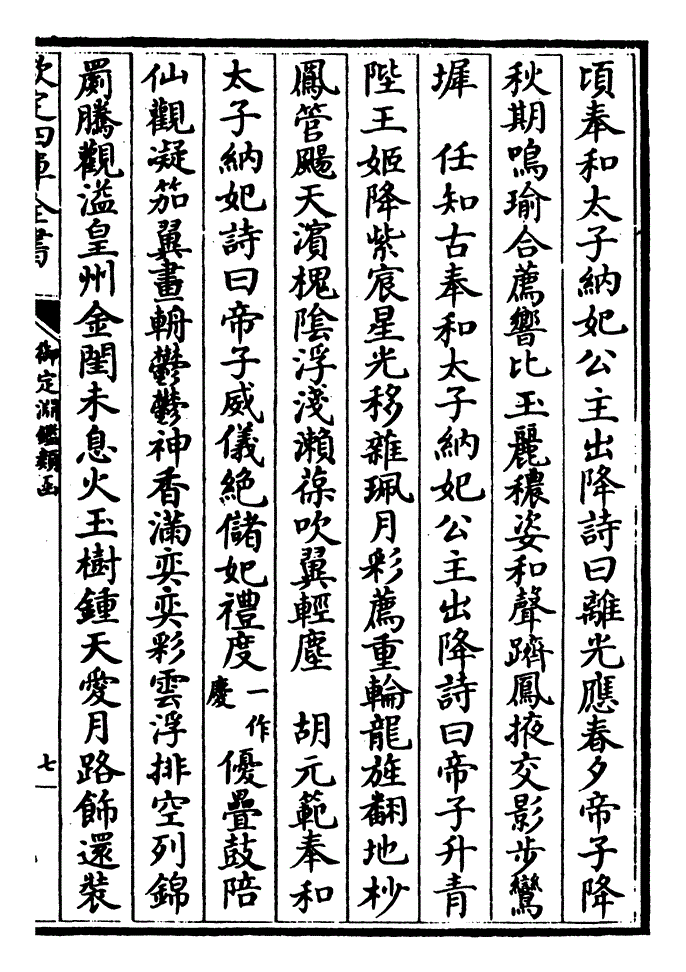 頃奉和太子納妃公主出降詩曰離光應春夕帝子降
秋期鳴瑜合薦響比玉麗穠姿和聲躋鳳掖交影步鸞
墀　任知古奉和太子納妃公主出降詩曰帝子升青
陛王姬降紫宸星光移雜珮月彩薦重輪龍旌翻地杪
鳳管颺天濱槐陰浮淺瀨葆吹翼輕塵　胡元範奉和
太子納妃詩曰帝子威儀絶儲妃禮度一作慶優疊鼓陪
仙觀凝笳翼畫輈鬱鬱神香滿奕奕彩雲浮排空列錦
罽騰觀溢皇州金閨未息火玉樹鍾天愛月路飾還裝
欽定四庫全書
御定淵鑑類函
七